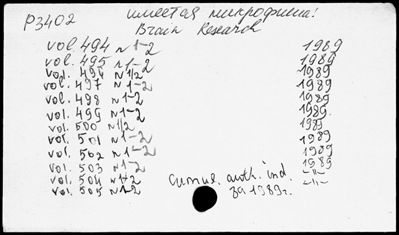 P3402 имеется микрофиша!
Brain Research
vol. 494 N 1-2 1989
vol. 495 N 1-2 1989
vol. 496 N 1/2 1989
vol. 497 N 1-2 1989
vol. 498 N 1-2 1989
vol. 499 N 1-2 1989
vol. 500 N 1/2 1989
vol. 501 N 1-2 1989
vol. 502 N 1-2 1989
vol. 503 N 1-2 1989
vol. 504 N 1-2 -"-
vol. 505 N 1-2 -"-
Cumul. auth. ind
за 1989г.